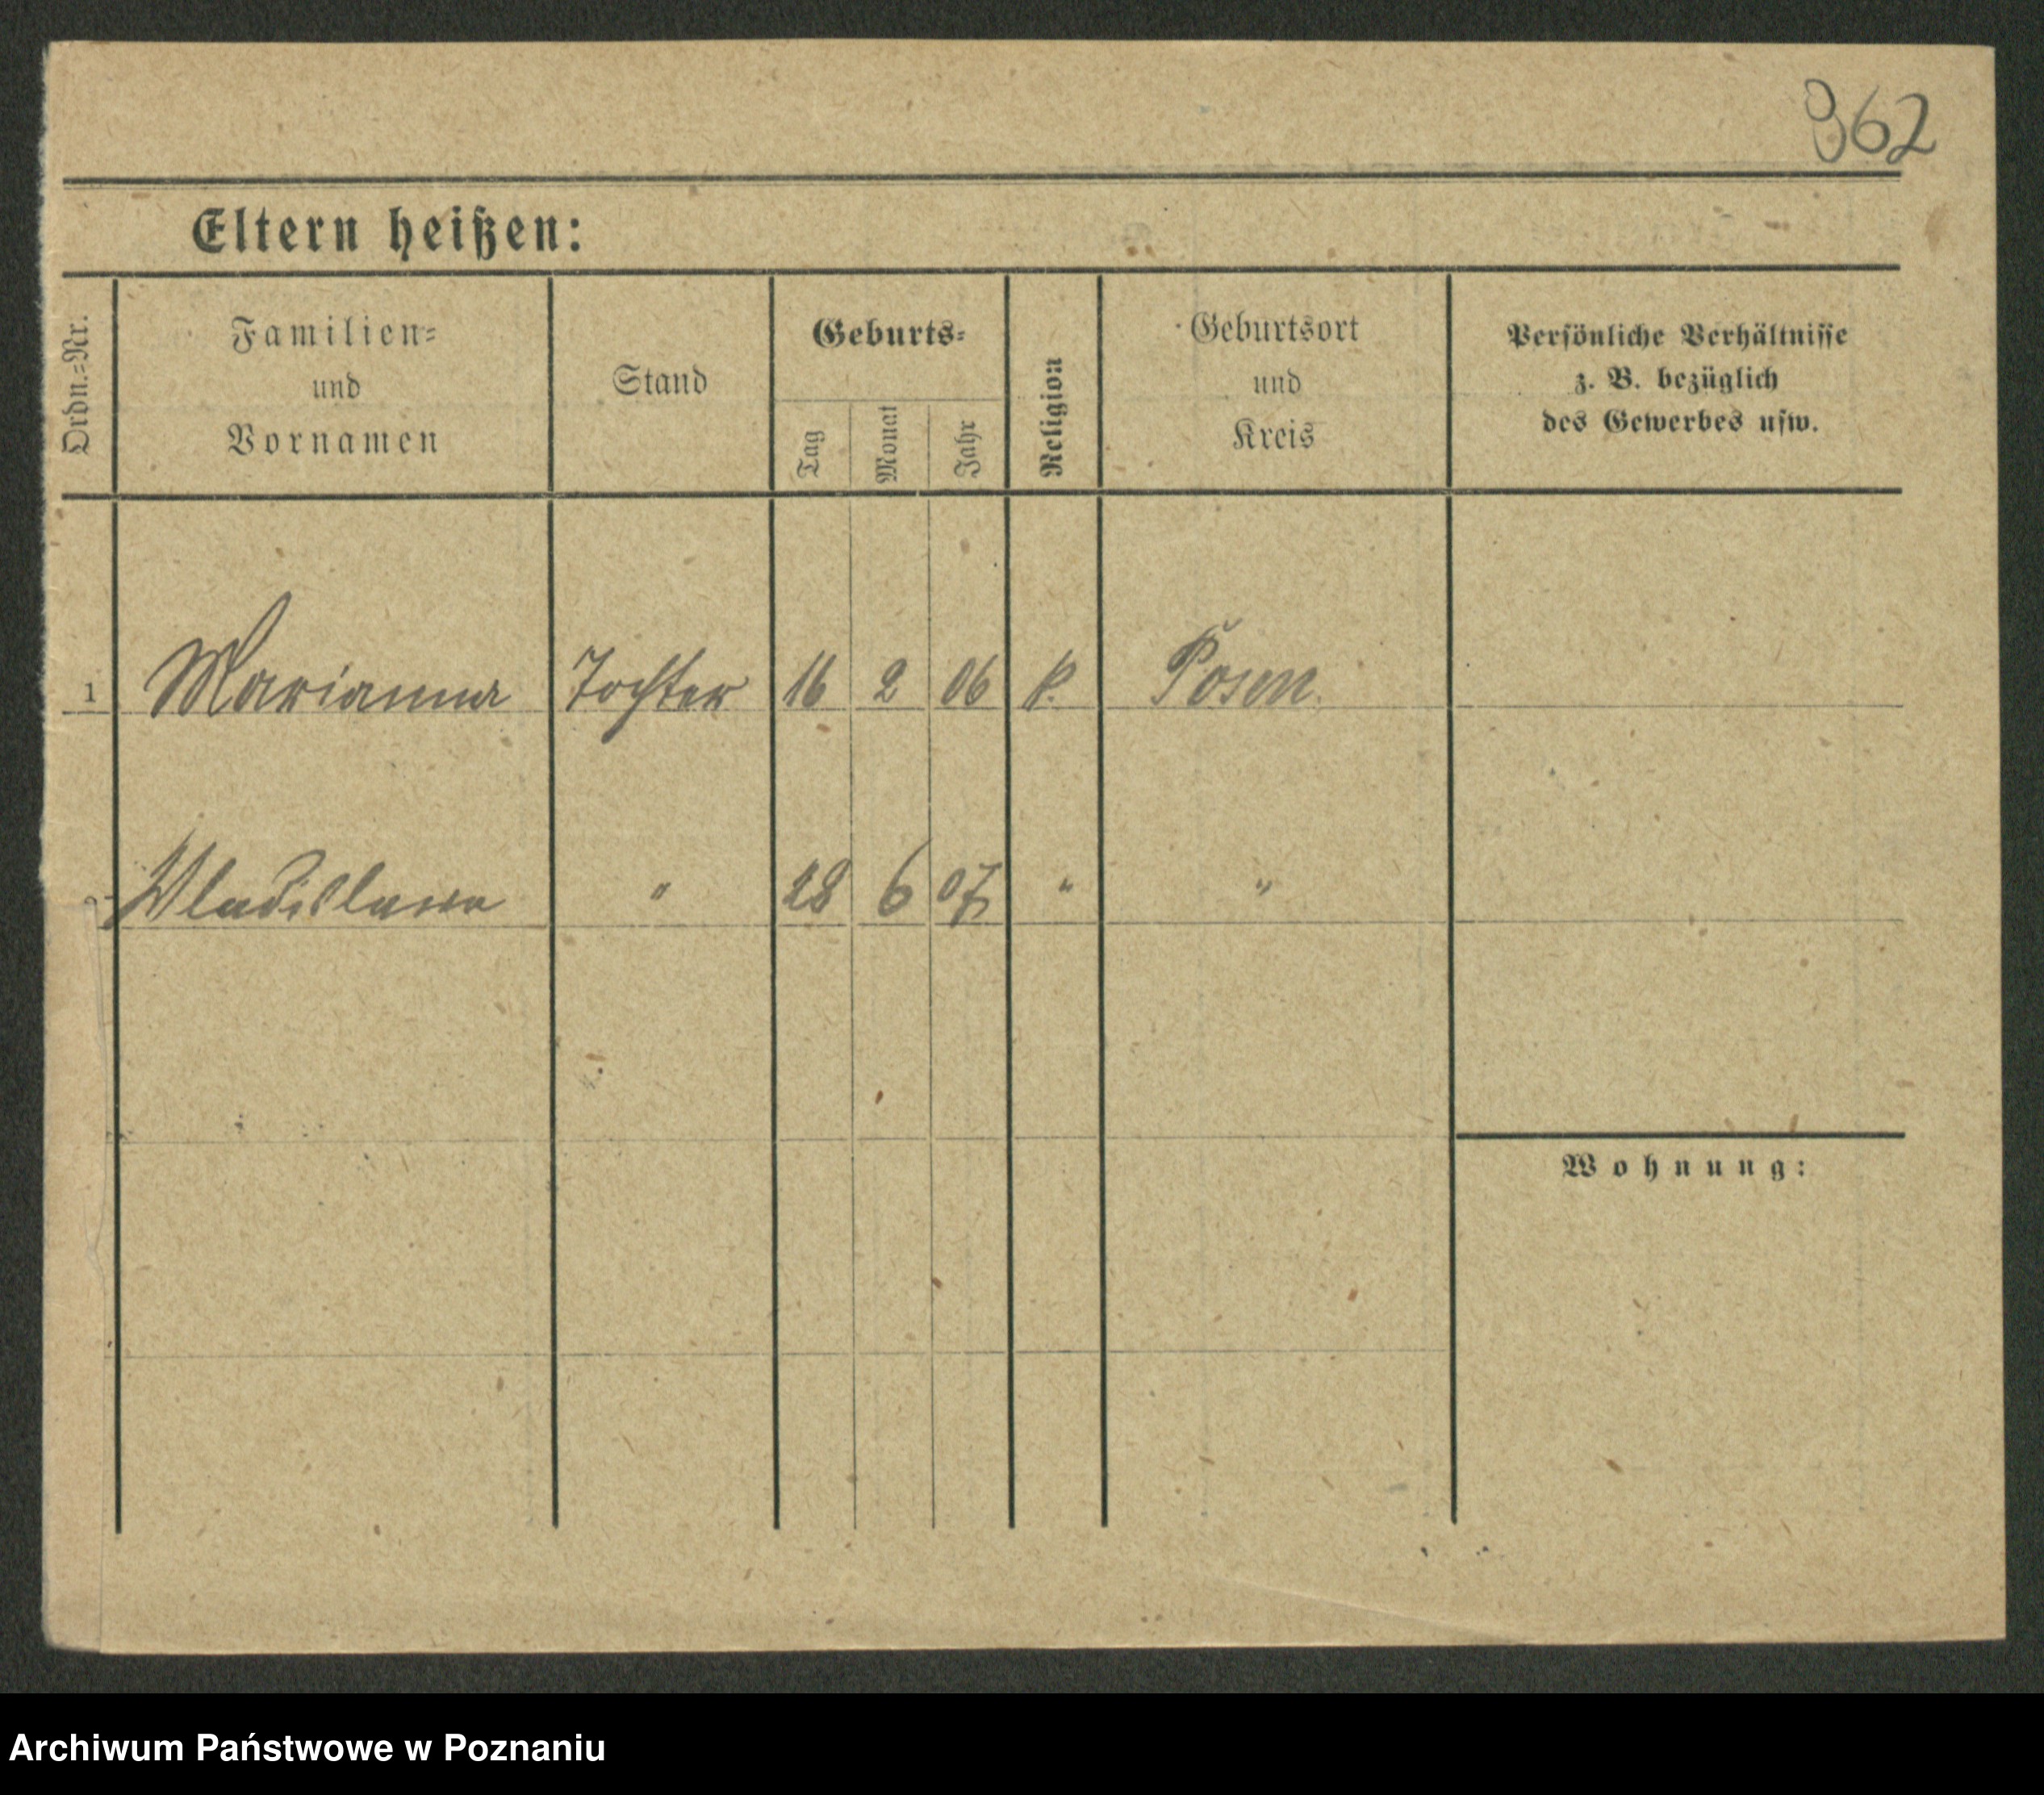 962
Eltern heißen:
Ordn.-Nr.
Familien-
und
Vornamen
Stand
Geburts-
Tag
Monat
Jahr
Religion
Geburtsort
und
Kreis
Persönliche Verhältnisse
z. B. bezüglich
des Gewerbes usw.
1 Marianna Tochter 16 2 06 k. Posen
Wladislawa " 28 6 07 " "
Wohnung:
Archiwum Państwowe w Poznaniu